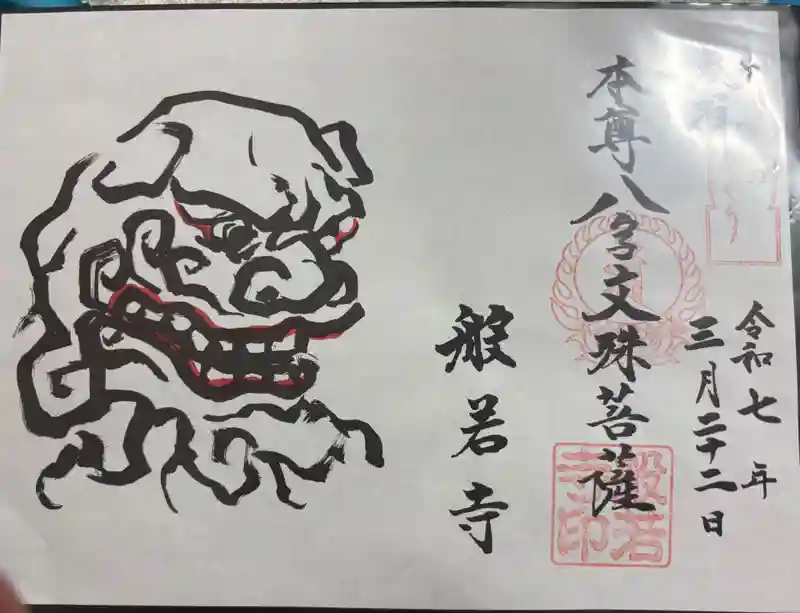 令和七年
三月二十二日
本尊八字文珠菩薩
般若寺
般若寺印